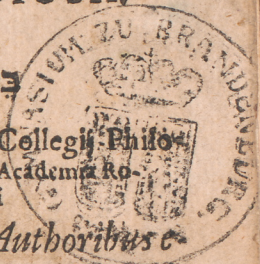 Collegij Philo-
Academia Ro-
i
Authoribus c-
SIUM ZU BRANDENBURG